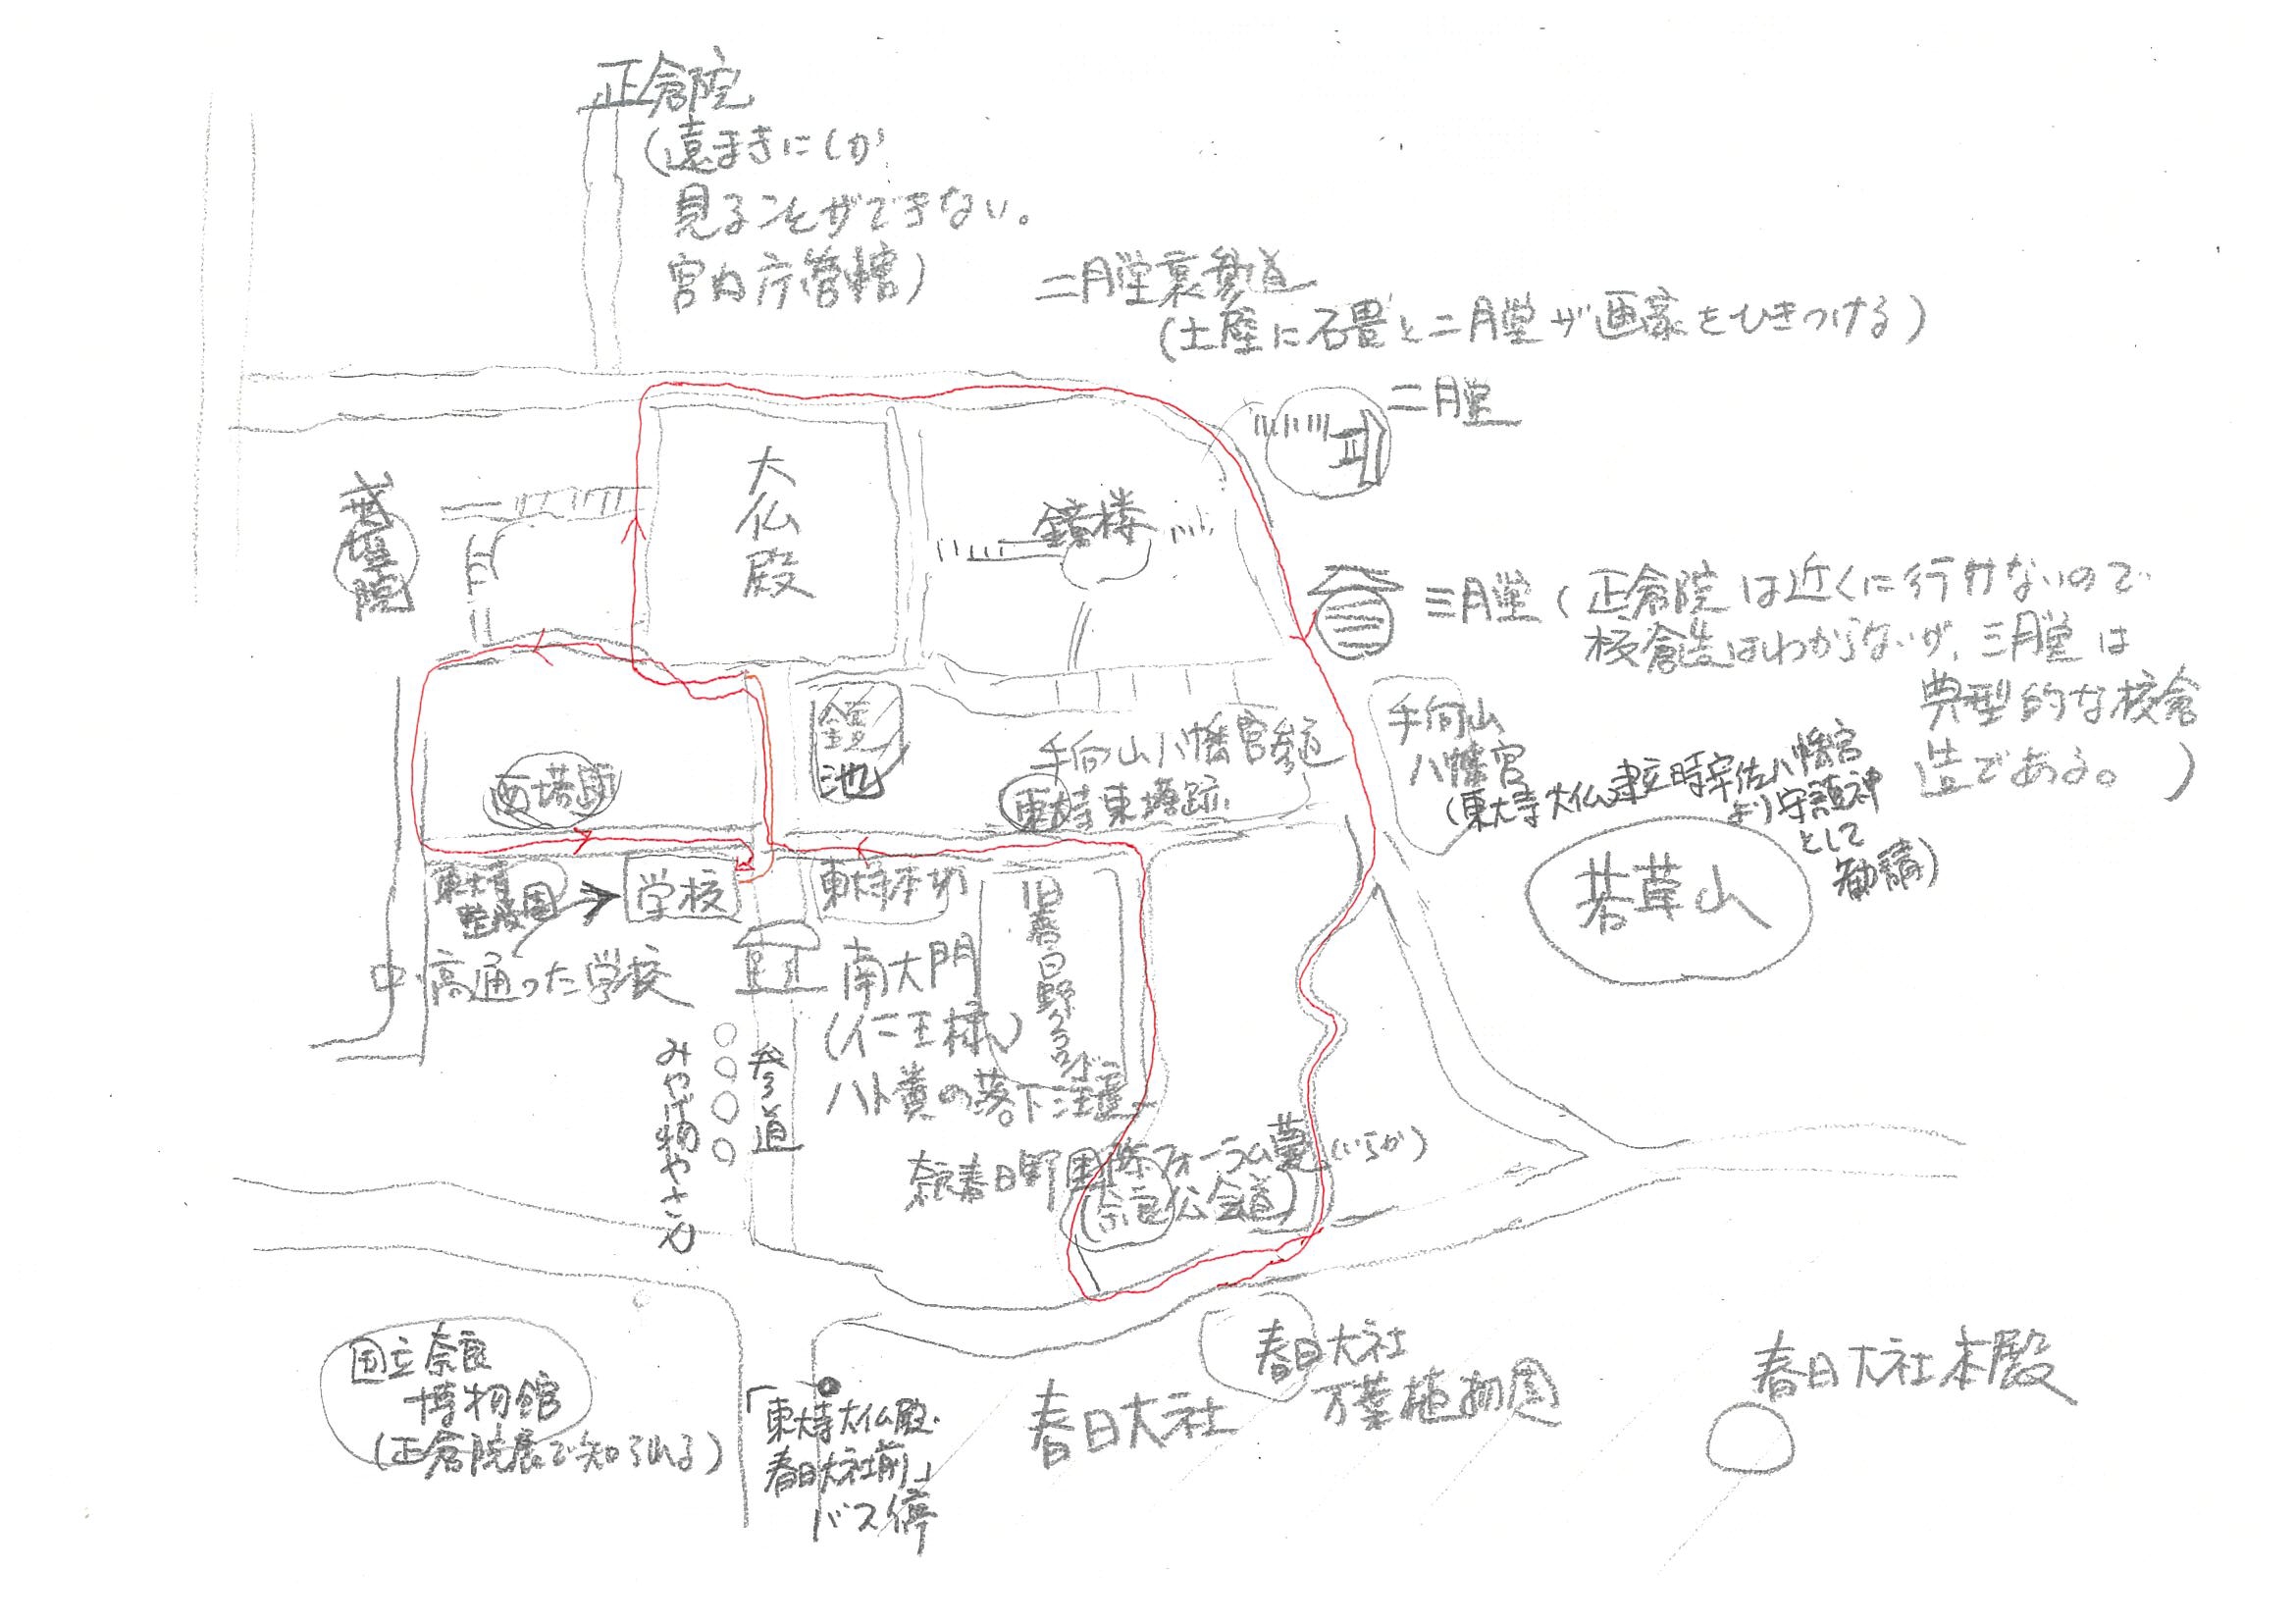 正倉院
(遠まきにしか
見ることができない。
宮内庁管轄)
二月堂裏参道
(土塀に石畳と二月堂が画家をひきつける)
二月堂
大
仏
殿
戒壇院
鐘楼
三月堂(正倉院は近くに行けないので
校倉造はわからないが、三月堂は
典型的な校倉
造である。)
鏡
池
手向山八幡宮参道
東大寺東塔跡
手向山
八幡宮
(東大寺大仏建立時宇佐八幡宮
より守護神
として
勧請)
西塔跡
若草山
東大寺
整肢園
学校
東大寺本坊
旧春日野グラウンド
中・高通った学校
南大門
(仁王様)
ハト糞の落下注意
参道
みやげ物やさん
奈良春日野国際フォーラム甍(いらか)
(奈良公会堂)
国立奈良
博物館
(正倉院展で知られる)
「東大寺大仏殿・
春日大社前」
バス停
春日大社
春日大社
万葉植物園
春日大社本殿